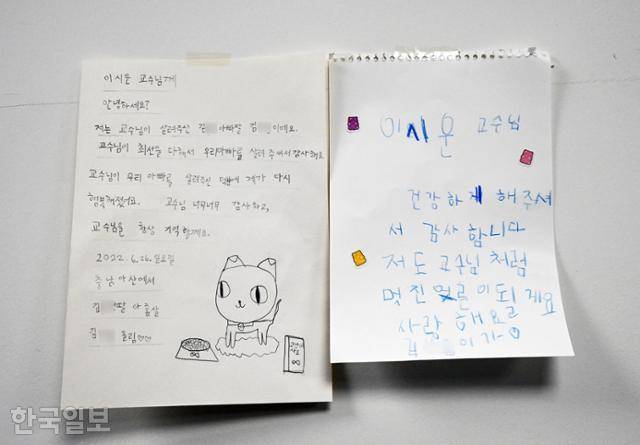 이시운 교수님께
안녕하세요?
저는 교수님이 살려주신 김 아빠딸 김 이예요.
교수님이 최선을 다해서 우리아빠를 살려주셔서 감사해요.
교수님이 우리 아빠를 살려주신 덕분에 제가 다시
행복해졌어요. 교수님 너무너무 감사하고,
교수님을 항상 기억할게요.
2022. 6. 26. 일요일
충남 아산에서
김 딸 아홉살
김 올림♡♡
이시운 교수님
건강하게 해주셔
서 감사합니다
저도 교수님처럼
멋진 어른이되게요
사랑해요
김 이가
한국일보